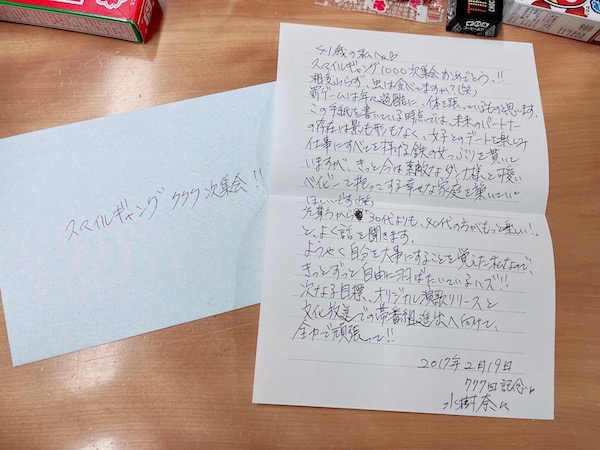 スマイルギャング 777次集会!!
41歳の私へ♡
スマイルギャング1000次集会おめでとう!!
相変わらず、虫は食べてますか?(笑)
罰ゲームは年々過酷に、体を張っているものと思います。
この手紙を書いている時点では、未来のパートナー
の存在は影も形もなく、女子とのデートを楽しみ
仕事にすべてを捧げる鉄の女っぷりを貫いて
いますが、きっと今は素敵なダンナ様と可愛い
ベイビーを抱っこする幸せな家庭を築いてい
てほしいです(笑)
先輩方から 30代よりも、40代の方がもっと楽しい!
と、よく話を聞きます。
ようやく自分を大事にすることを覚えた私なので、
きっとずっと自由に羽ばたいているハズ!!
次なる目標、オリジナル演歌リリースと
文化放送での帯番組進出へ向けて、
全力で頑張って!!
2017年2月19日
777回記念♪
水樹奈々